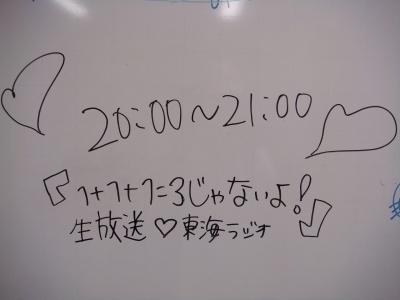 20:00~21:00
『1+1+1=3じゃないよ!』
生放送♡東海ラジオ